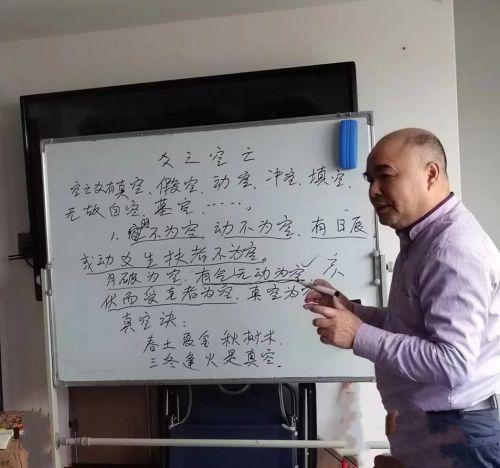 爻之空亡
空之爻有真空、假空、动空、冲空、填空、
无故自空、墓空、……。
1. 旺不为空, 动不为空, 有日辰
或动爻生扶者不为空。
月破为空, 有气无动为空
伏而受克者为空, 真空为空
真空诀:
春土夏金秋树木
三冬逢火是真空.